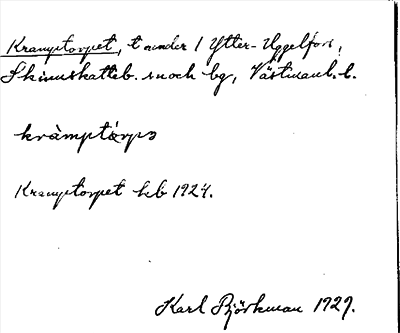 Kramptorpet, t under 1 Ytter-Uggelfors,
Skinnskatteb. sn och bg, Västmanl. l.
kràmptórps
Kramptorpet kb 1924.
Karl Björkman 1929.